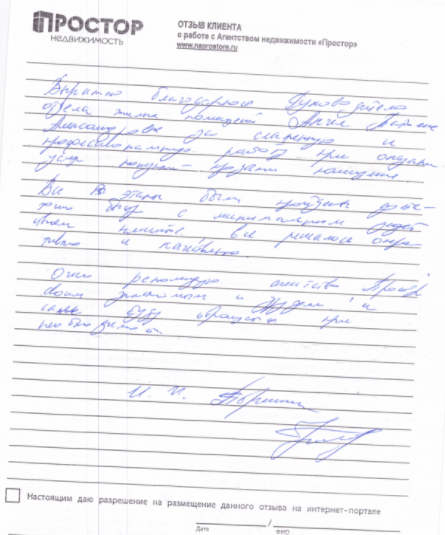 ПРОСТОР
НЕДВИЖИМОСТЬ
ОТЗЫВ КЛИЕНТА
о работе с Агентством недвижимости «Простор»
www.naprostore.ru
благодарность Руководителю
отдела жилых помещений
Александровне за слаженную и
профессиональную работу при оказании
услуг покупки-продажи помещения
Все этапы были пройдены
с минимальным
все решалось опера-
тивно и качественно.
Очень рекомендую агентство Простор
своим знакомым и друзьям и
сама буду обращаться при
необходимости
И. И.
Настоящим даю разрешение на размещение данного отзыва на интернет-портале
/
Дата ФИО